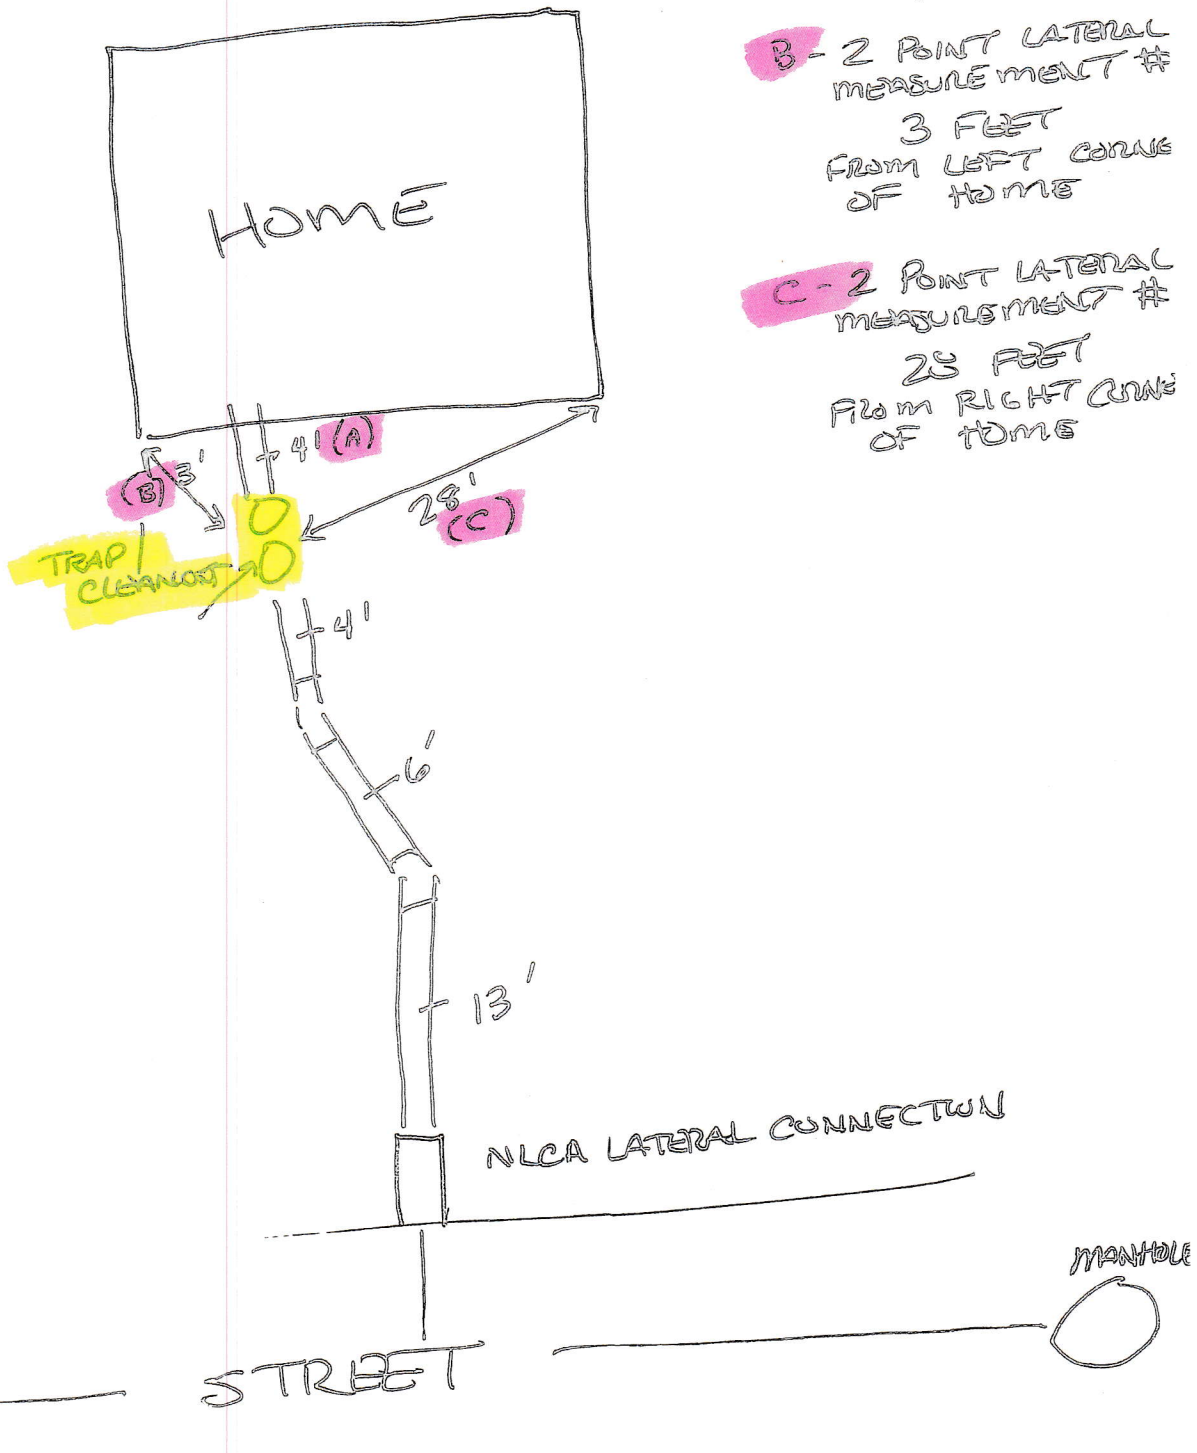 B - 2 POINT LATERAL
MEASUREMENT #
3 FEET
FROM LEFT CORNE
OF HOME
HOME
C - 2 POINT LATERAL
MEASUREMENT #
28 FEET
FROM RIGHT CORNE
OF HOME
4' (A)
(B) 3'
28'
(C)
TRAP
CLEANOUT
4'
6'
13'
NLCA LATERAL CONNECTION
MANHOLE
STREET